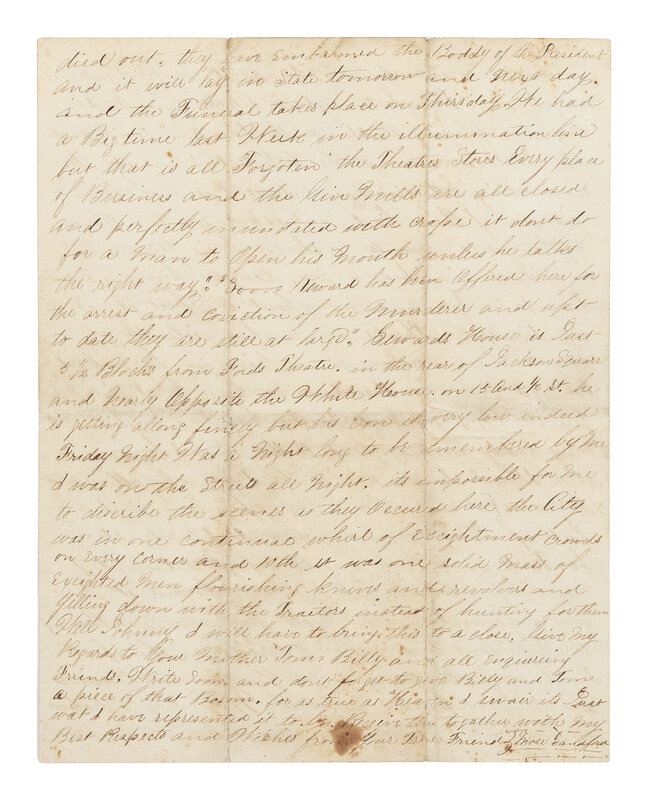 died out. they have Embalmed the Boddy of the President
and it will lay in State tomorrow and next day.
and the Funeral takes place on Thirsday. We had
a Big time last Week in the illumination line
but that is all Forgoten the Theatres Stores Every place
of Business and the Gin Mills are all closed
and perfectly inundated with crape it dont do
for a man to Open his Mouth unless he talks
the right way." "30000 Reward has been Offered here for
the arrest and coviction of the Murderer and upt
to date they are still at large". Sewards House is Just
5 1/2 Blocks from Fords Theatre. in the rear of Jackson Square
and Nearly Opposite the White House. on 15 and H St. he
is getting allong finely but his Son is very low indeed
Friday Night Was a Night long to be remembered by Me
I was on the Streets all Night. its impossible for Me
to describe the scenes as they Occured here the City
was in one continual whirl of Excightment crowds
on Every corner and 10th St was one solid mass of
Excighted Men flourishing knives and revolvers and
Yelling down with the Traitors instead of hunting for them
Well Johnny I will have to bring this to a close. Give My
Regards to Your Mother Tom Billy and all Enquireing
Friend. Write Soon. and dont forget to give Billy and Tom
a piece of that Bosom. for as true as Heaven I swair its Just
wat I have represented it to be. Receive this to gather with my
Best Respects and Wishes from Your True Friend Mose Sandford